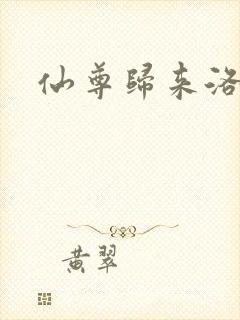 仙尊歸来洛
黄翠